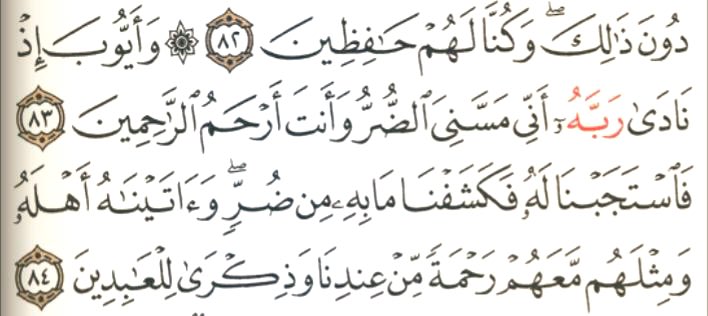 دُونَ ذَٰلِكَۖ وَكُنَّا لَهُمْ حَٰفِظِينَ ٨٢ ۞ وَأَيُّوبَ إِذْ
نَادَىٰ رَبَّهُۥٓ أَنِّي مَسَّنِيَ ٱلضُّرُّ وَأَنتَ أَرْحَمُ ٱلرَّٰحِمِينَ ٨٣
فَٱسْتَجَبْنَا لَهُۥ فَكَشَفْنَا مَا بِهِۦ مِن ضُرٍّۖ وَءَاتَيْنَٰهُ أَهْلَهُۥ
وَمِثْلَهُم مَّعَهُمْ رَحْمَةً مِّنْ عِندِنَا وَذِكْرَىٰ لِلْعَٰبِدِينَ ٨٤